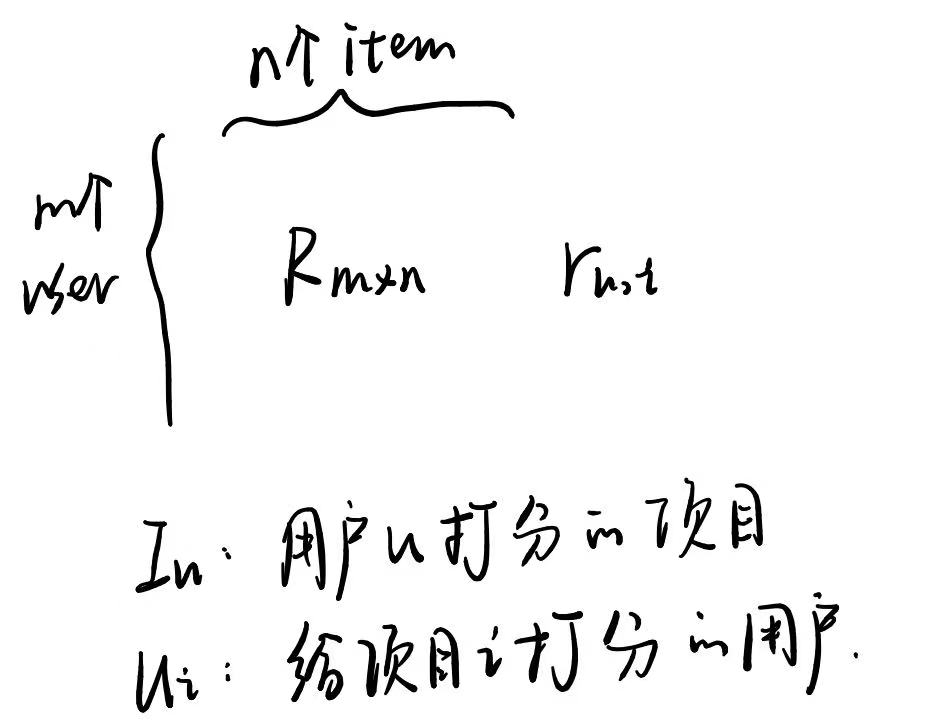 n个 item
m个
user
Rm×n ru,i
Iu: 用户u打分的项目
Ui: 给项目i打分的用户.